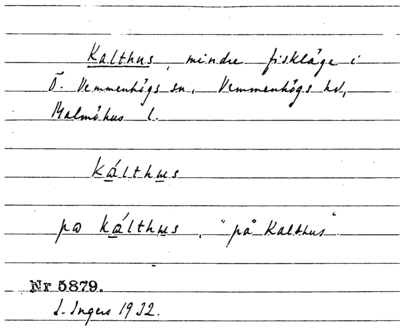 Kalthus, mindre fiskläge i
Ö. Vemmenhögs sn, Vemmenhögs hd,
Malmöhus l.
kálthus
pɷ kálthus, "på Kalthus"
Nr 5879.
I. Ingers 1932.